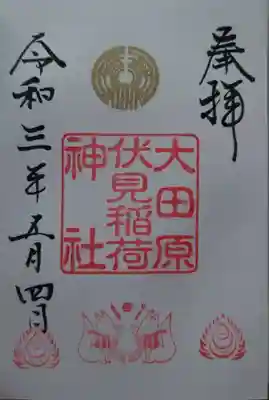 奉拝
大田原
伏見稲荷
神社
令和三年五月四日